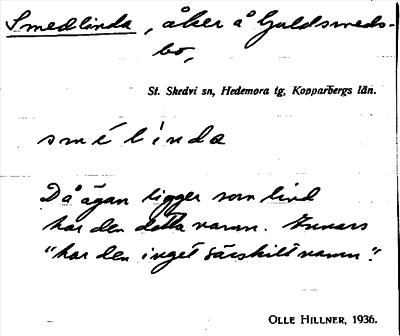 Smedlinda, åker å Guldsmeds-
bo,
St. Skedvi sn, Hedemora tg, Kopparbergs län.
smélinda
Då ägan ligger som lind
har den detta namn. Annars
"har den inget särskilt namn".
OLLE HILLNER, 1936.